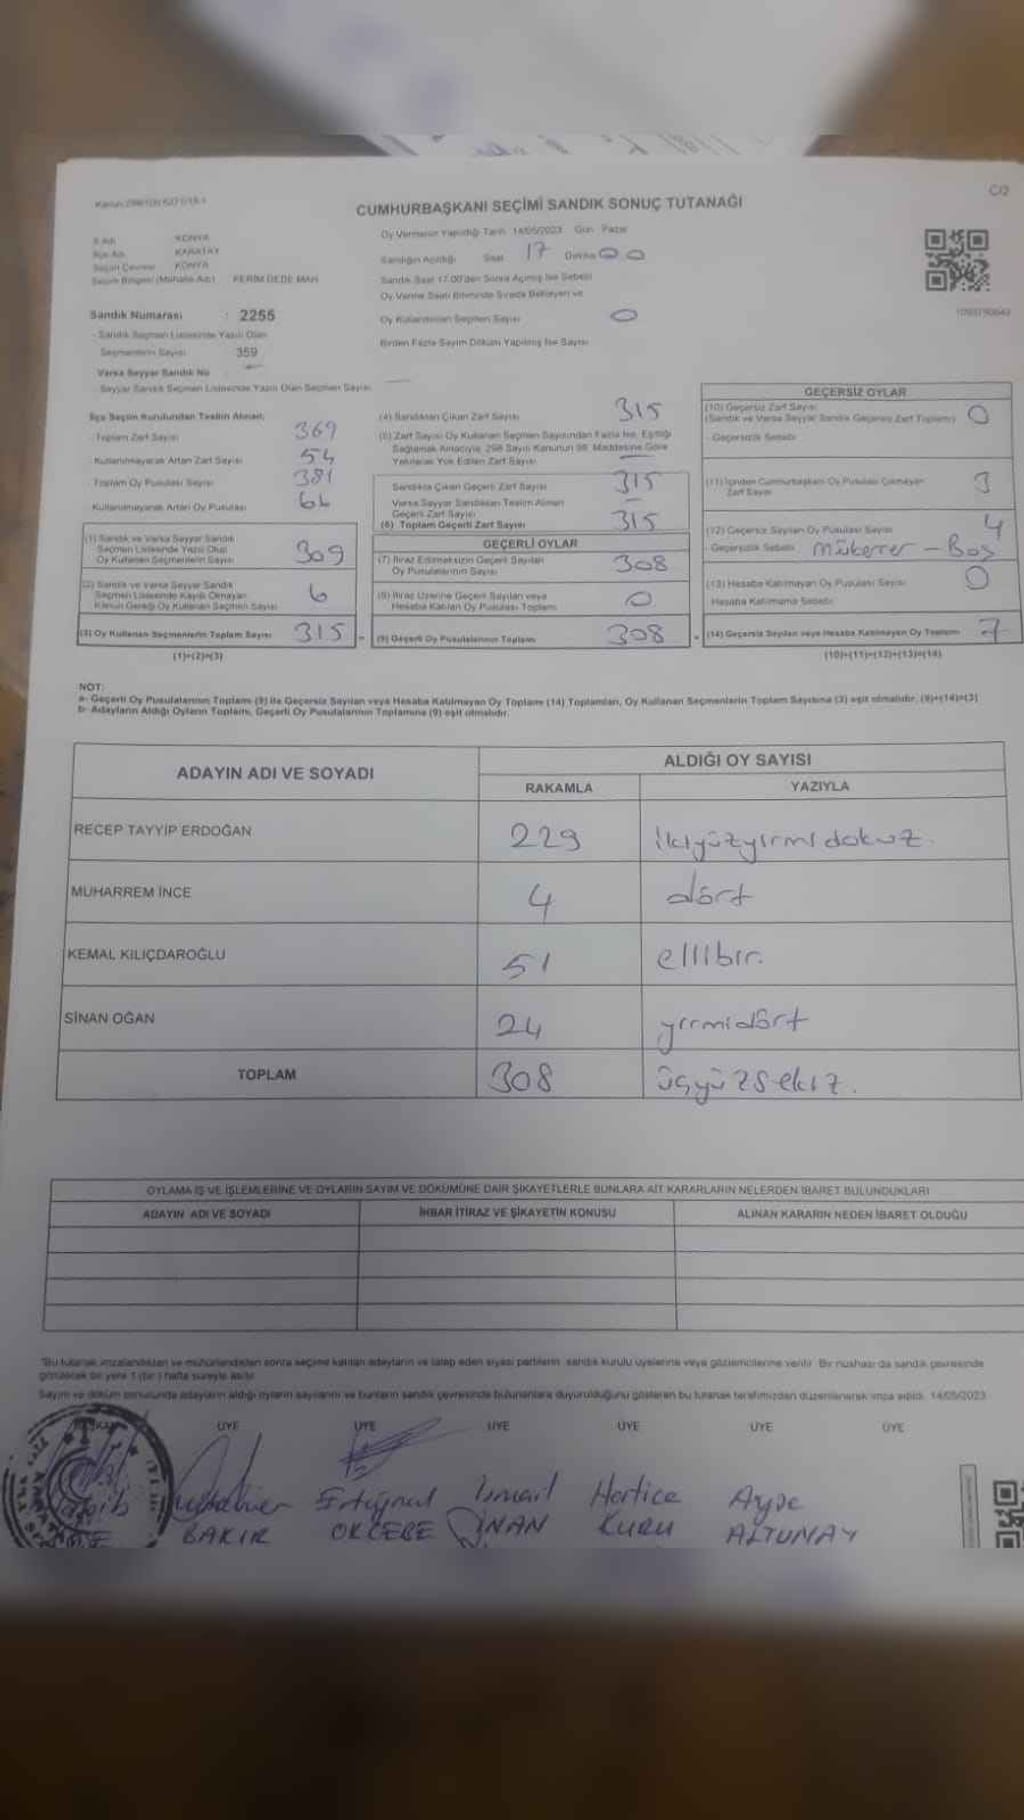 C/2
CUMHURBAŞKANI SEÇİMİ SANDIK SONUÇ TUTANAĞI
Oy Vermenin Yapıldığı Tarih 14/05/2023 Gün Pazar
İl Adı KONYA
İlçe Adı KARATAY
Seçim Çevresi KONYA
Seçim Bölgesi (Mahalle Adı) FERİM DEDE MAH
Sandığın Açıldığı Saat 17 Dakika 00
Sandık Saat 17.00'den Sonra Açılmış İse Sebebi
Oy Verme Saati Bitiminde Sırada Bekleyen ve
Oy Kullandırılan Seçmen Sayısı 0
Birden Fazla Sayım Döküm Yapılmış İse Sayısı
Sandık Numarası : 2255
- Sandık Seçmen Listesinde Yazılı Olan
Seçmenlerin Sayısı 359
Varsa Seyyar Sandık No
- Seyyar Sandık Seçmen Listesinde Yazılı Olan Seçmen Sayısı
İlçe Seçim Kurulundan Teslim Alınan;
- Toplam Zarf Sayısı 369
- Kullanılmayarak Artan Zarf Sayısı 54
- Toplam Oy Pusulası Sayısı 381
- Kullanılmayarak Artan Oy Pusulası 66
(1) Sandık ve Varsa Seyyar Sandık
Seçmen Listesinde Yazılı Olup
Oy Kullanan Seçmenlerin Sayısı 309
(2) Sandık ve Varsa Seyyar Sandık
Seçmen Listesinde Kayıtlı Olmayan
Kanun Gereği Oy Kullanan Seçmen Sayısı 6
(3) Oy Kullanan Seçmenlerin Toplam Sayısı 315
(1)+(2)=(3)
(4) Sandıktan Çıkan Zarf Sayısı 315
(5) Zarf Sayısı Oy Kullanan Seçmen Sayısından Fazla İse, Eşitliği
Sağlamak Amacıyla, 298 Sayılı Kanunun 98. Maddesine Göre
Yakılarak Yok Edilen Zarf Sayısı
Sandıkta Çıkan Geçerli Zarf Sayısı 315
Varsa Seyyar Sandıktan Teslim Alınan
Geçerli Zarf Sayısı
(6) Toplam Geçerli Zarf Sayısı 315
GEÇERLİ OYLAR
(7) İtiraz Edilmeksizin Geçerli Sayılan
Oy Pusulalarının Sayısı 308
(8) İtiraz Üzerine Geçerli Sayılan veya
Hesaba Katılan Oy Pusulası Toplamı 0
(9) Geçerli Oy Pusulalarının Toplamı 308
GEÇERSİZ OYLAR
(10) Geçersiz Zarf Sayısı
(Sandık ve Varsa Seyyar Sandık Geçersiz Zarf Toplamı) 0
- Geçersizlik Sebebi
(11) İçinden Cumhurbaşkanı Oy Pusulası Çıkmayan
Zarf Sayısı 3
(12) Geçersiz Sayılan Oy Pusulası Sayısı 4
Geçersizlik Sebebi Mükerrer - Boş
(13) Hesaba Katılmayan Oy Pusulası Sayısı 0
Hesaba Katılmama Sebebi
(14) Geçersiz Sayılan veya Hesaba Katılmayan Oy Toplamı 7
(10)+(11)+(12)+(13)=(14)
NOT:
a- Geçerli Oy Pusulalarının Toplamı (9) ile Geçersiz Sayılan veya Hesaba Katılmayan Oy Toplamı (14) Toplamları, Oy Kullanan Seçmenlerin Toplam Sayısına (3) eşit olmalıdır. (9)+(14)=(3)
b- Adayların Aldığı Oyların Toplamı, Geçerli Oy Pusulalarının Toplamına (9) eşit olmalıdır.
ADAYIN ADI VE SOYADI ALDIĞI OY SAYISI
RAKAMLA YAZIYLA
RECEP TAYYİP ERDOĞAN 229 ikiyüzyirmidokuz.
MUHARREM İNCE 4 dört
KEMAL KILIÇDAROĞLU 51 ellibir.
SİNAN OĞAN 24 yirmidört
TOPLAM 308 üçyüzsekiz.
OYLAMA İŞ VE İŞLEMLERİNE VE OYLARIN SAYIM VE DÖKÜMÜNE DAİR ŞİKAYETLERLE BUNLARA AİT KARARLARIN NELERDEN İBARET BULUNDUKLARI
ADAYIN ADI VE SOYADI İHBAR İTİRAZ VE ŞİKAYETİN KONUSU ALINAN KARARIN NEDEN İBARET OLDUĞU
*Bu tutanak imzalandıktan ve mühürlendikten sonra seçime katılan adayların ve talep eden siyasi partilerin sandık kurulu üyelerine veya gözlemcilerine verilir. Bir nüshası da sandık çevresinde
görülecek bir yere 1 (bir) hafta süreyle asılır.
Sayım ve döküm sonucunda adayların aldığı oyların sayılarını ve bunların sandık çevresinde bulunanlara duyurulduğunu gösteren bu tutanak tarafımızdan düzenlenerek imza edildi. 14/05/2023
ÜYE ÜYE ÜYE ÜYE ÜYE ÜYE
Ertuğrul İsmail Hatice Ayşe
BAKIR ÖKCEBE İNAN KURU ALTUNAY